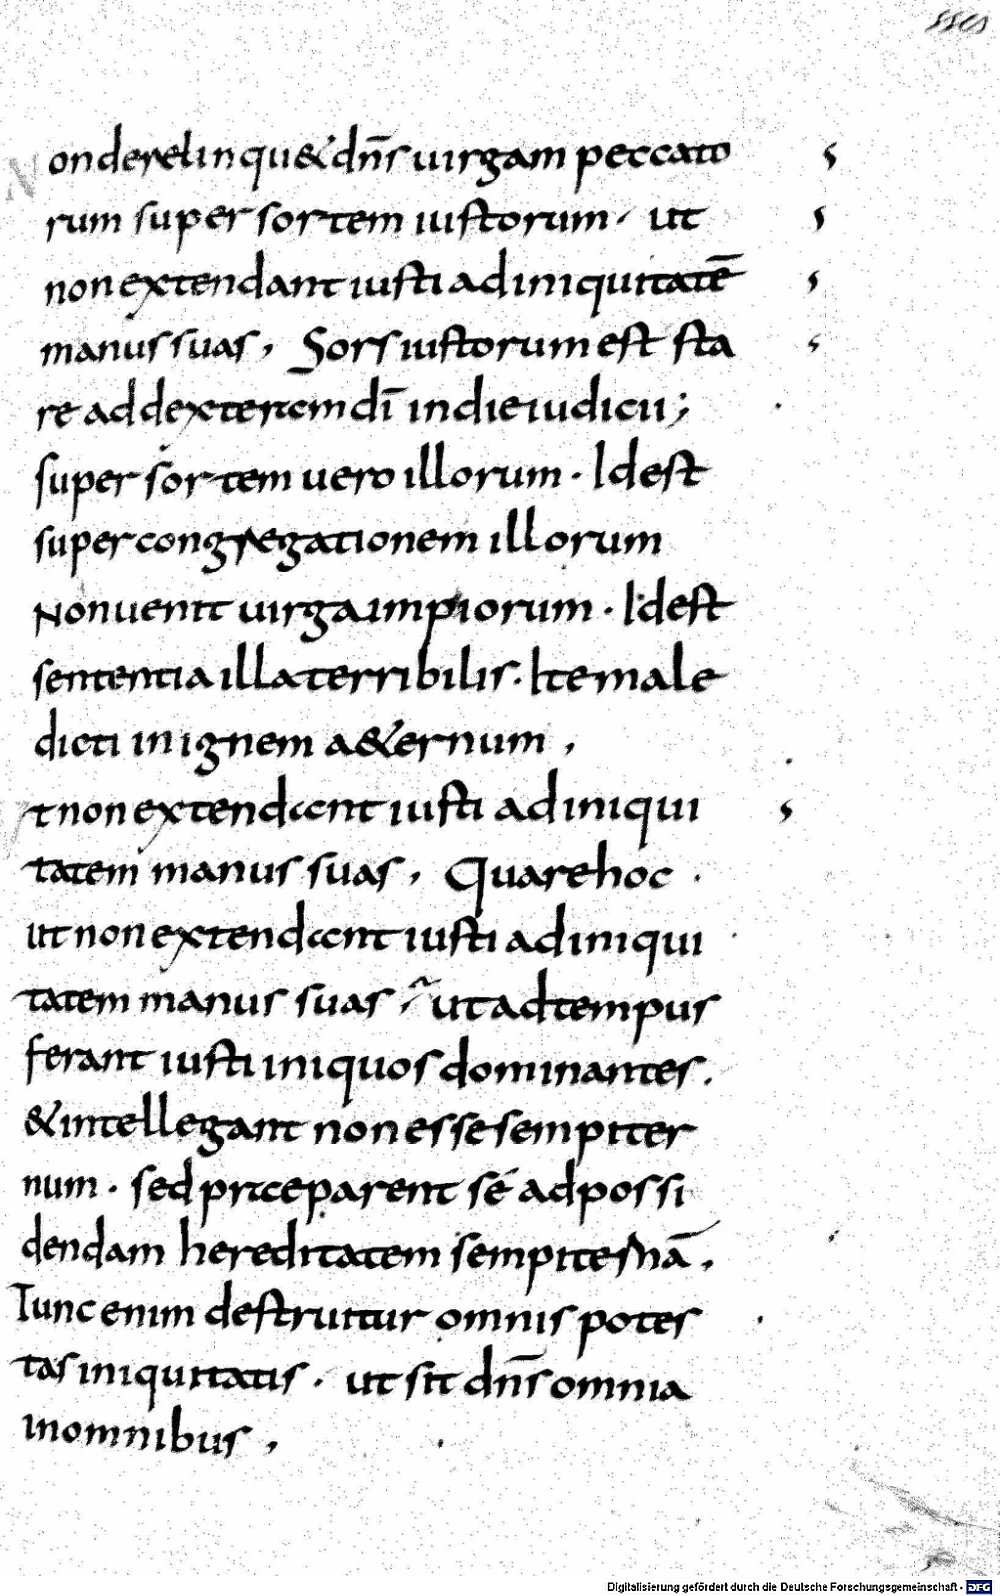 Non derelinqu&dn̄s uirgam peccato
rum super sortem iustorum. ut
non extendant iusti ad iniquitatē
manus suas, Sors iustorum est sta
re ad dexteram dī in die iudicii;
super sortem uero illorum. Idest
super congregationem illorum
Non uenit uirga impiorum. Idest
sententia illa terribilis. Ite male
dicti in ignem a&ernum,
t non extendant iusti ad iniqui
tatem manus suas, Quare hoc.
ut non extendant iusti ad iniqui
tatem manus suas, ut ad tempus
ferant iusti iniquos dominantes.
&intellegant non esse sempiter
num. sed praeparent sé ad possi
dendam hereditatem sempiternā,
Tunc enim destruitur omnis potes
tas iniquitatis. ut sit dn̄s omnia
in omnibus,
Digitalisierung gefördert durch die Deutsche Forschungsgemeinschaft - DFG